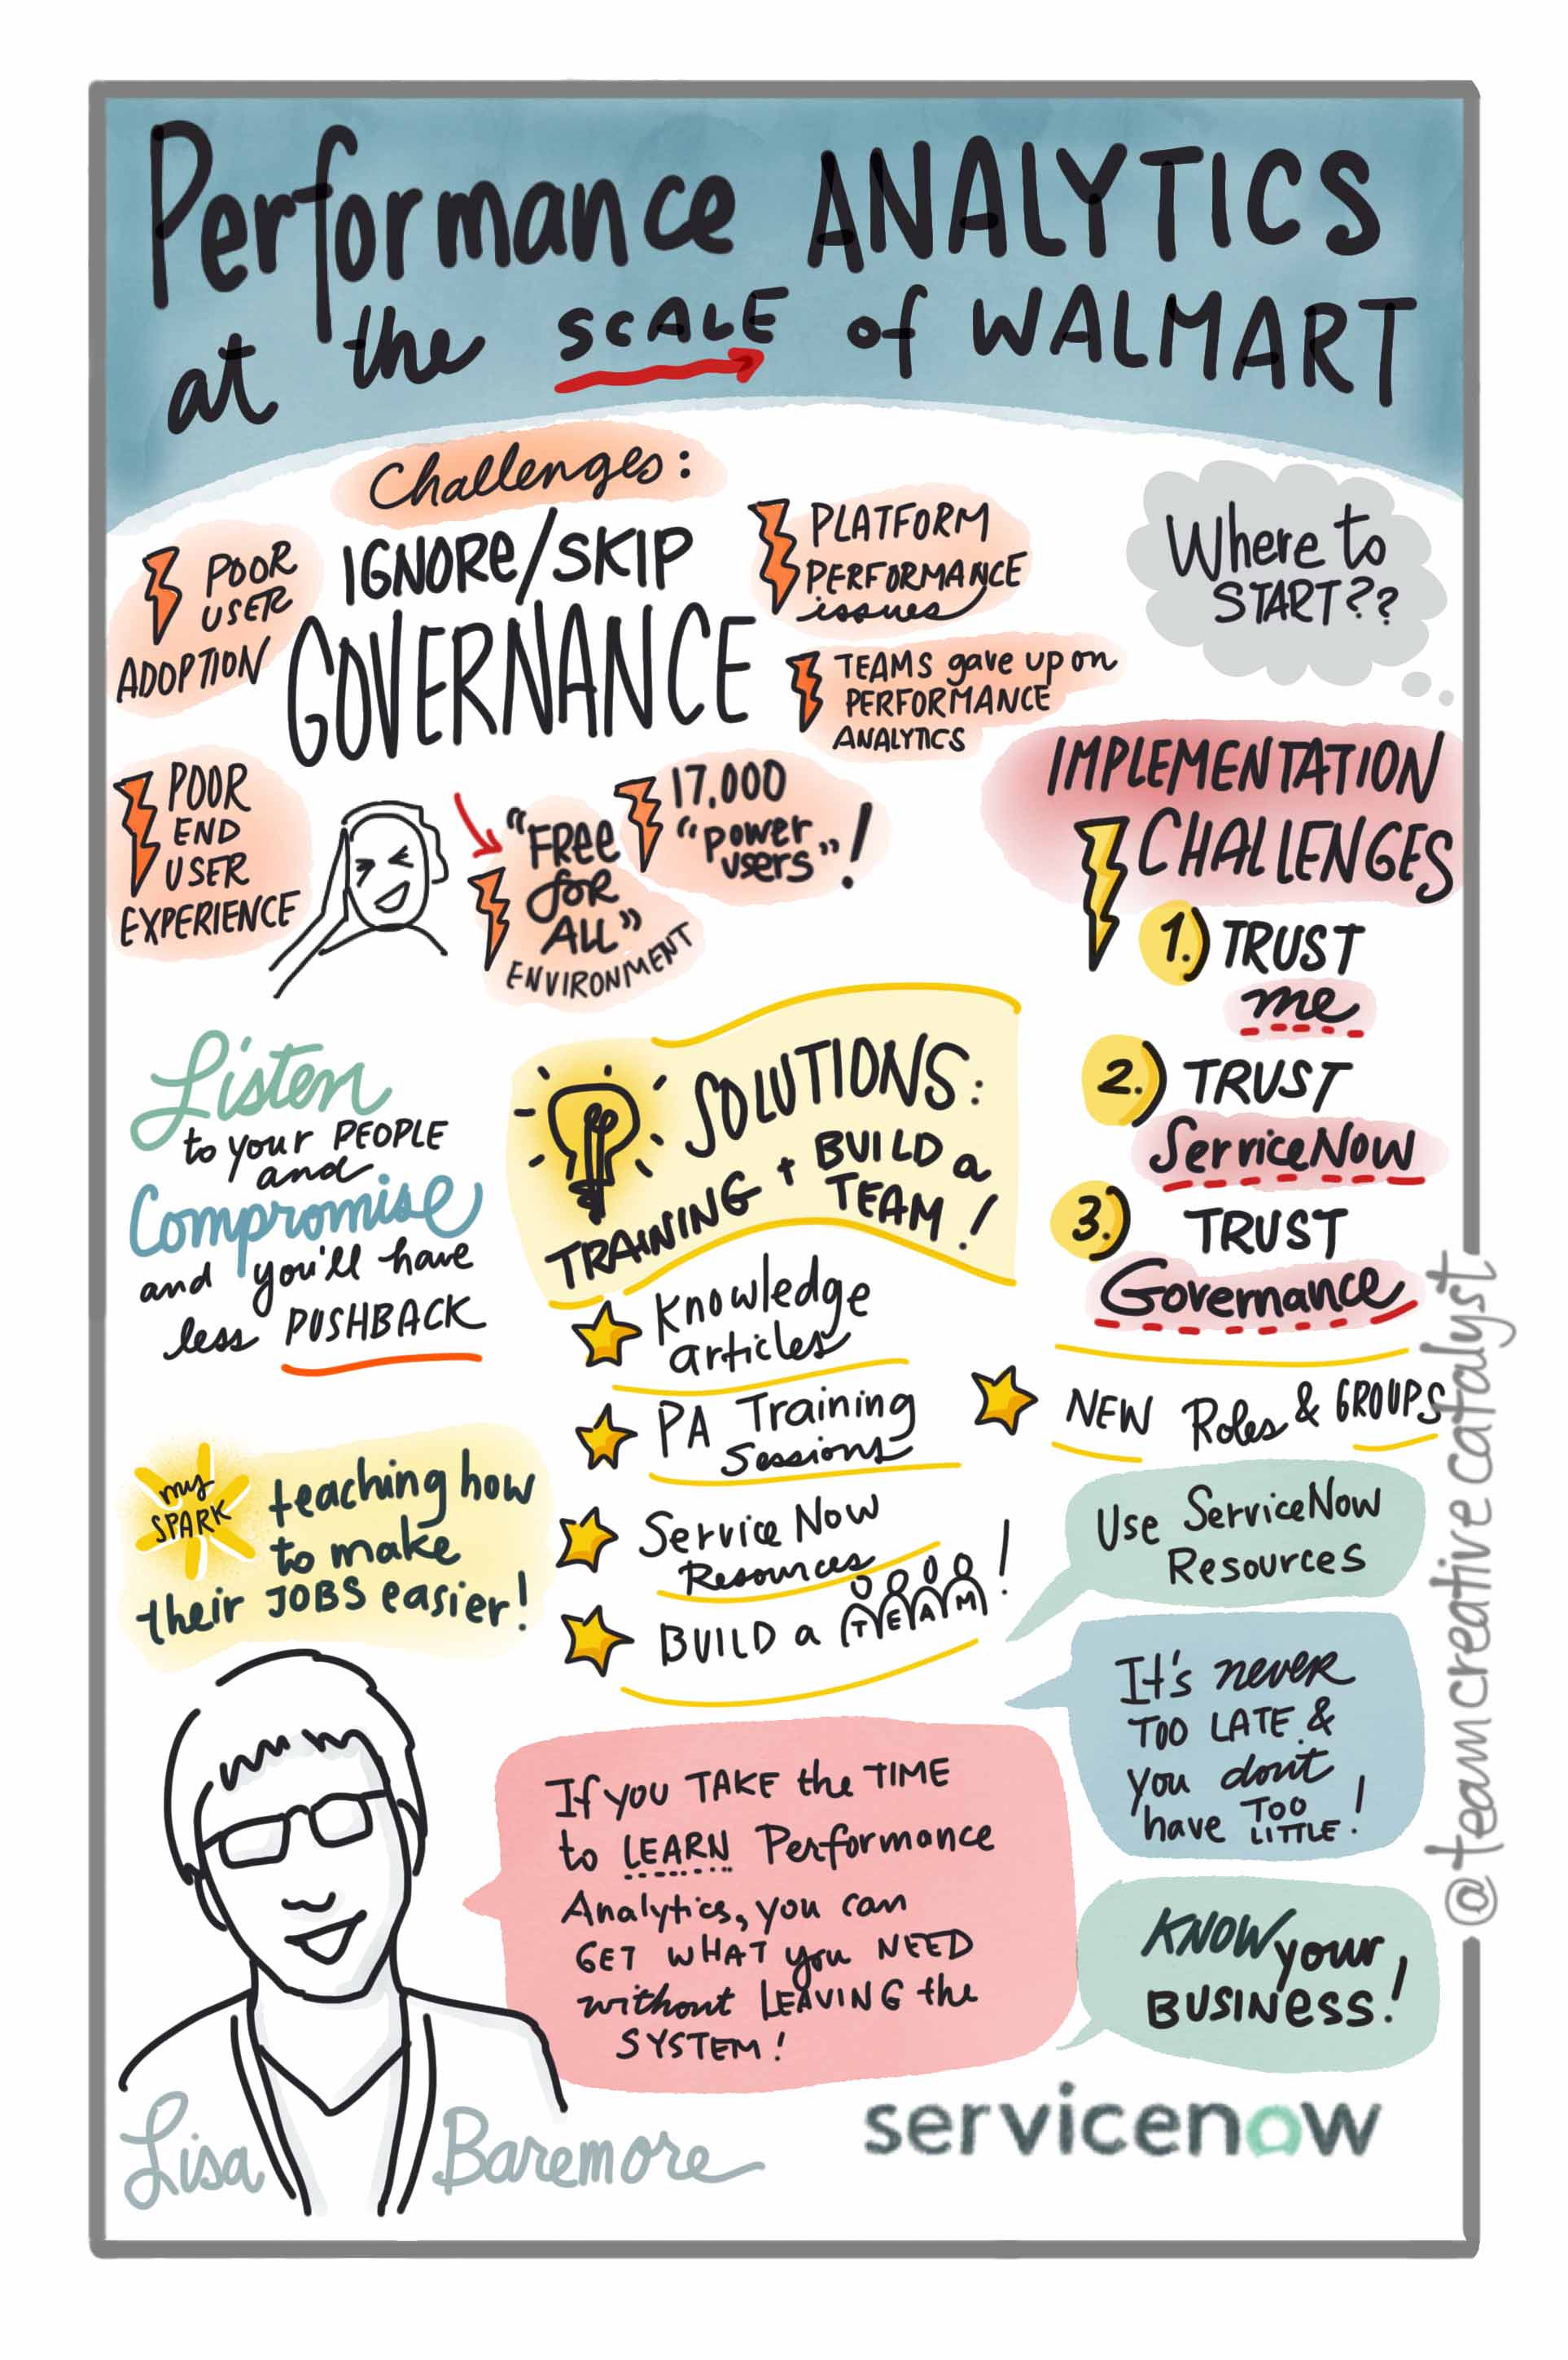 Performance ANALYTICS
at the SCALE of WALMART
Challenges:
IGNORE/SKIP
GOVERNANCE
POOR
USER
ADOPTION
PLATFORM
PERFORMANCE
issues
TEAMS gave up on
PERFORMANCE
ANALYTICS
POOR
END
USER
EXPERIENCE
"FREE
for
ALL"
ENVIRONMENT
17,000
"power
users"!
Where to
START??
IMPLEMENTATION
CHALLENGES
1.) TRUST
me
2.) TRUST
ServiceNow
3.) TRUST
Governance
Listen
to your PEOPLE
and
Compromise
and you'll have
less PUSHBACK
SOLUTIONS:
TRAINING + BUILD a
TEAM!
Knowledge
articles
PA Training
Sessions
Service Now
Resources
BUILD a TEAM!
NEW Roles & GROUPS
my
SPARK
teaching how
to make
their JOBS easier!
Use ServiceNow
Resources
It's never
TOO LATE &
you don't
have TOO
LITTLE!
If you TAKE the TIME
to LEARN Performance
Analytics, you can
GET WHAT you NEED
without LEAVING the
SYSTEM!
KNOW your
BUSINESS!
Lisa Baremore
servicenow
@teamcreativecatalyst